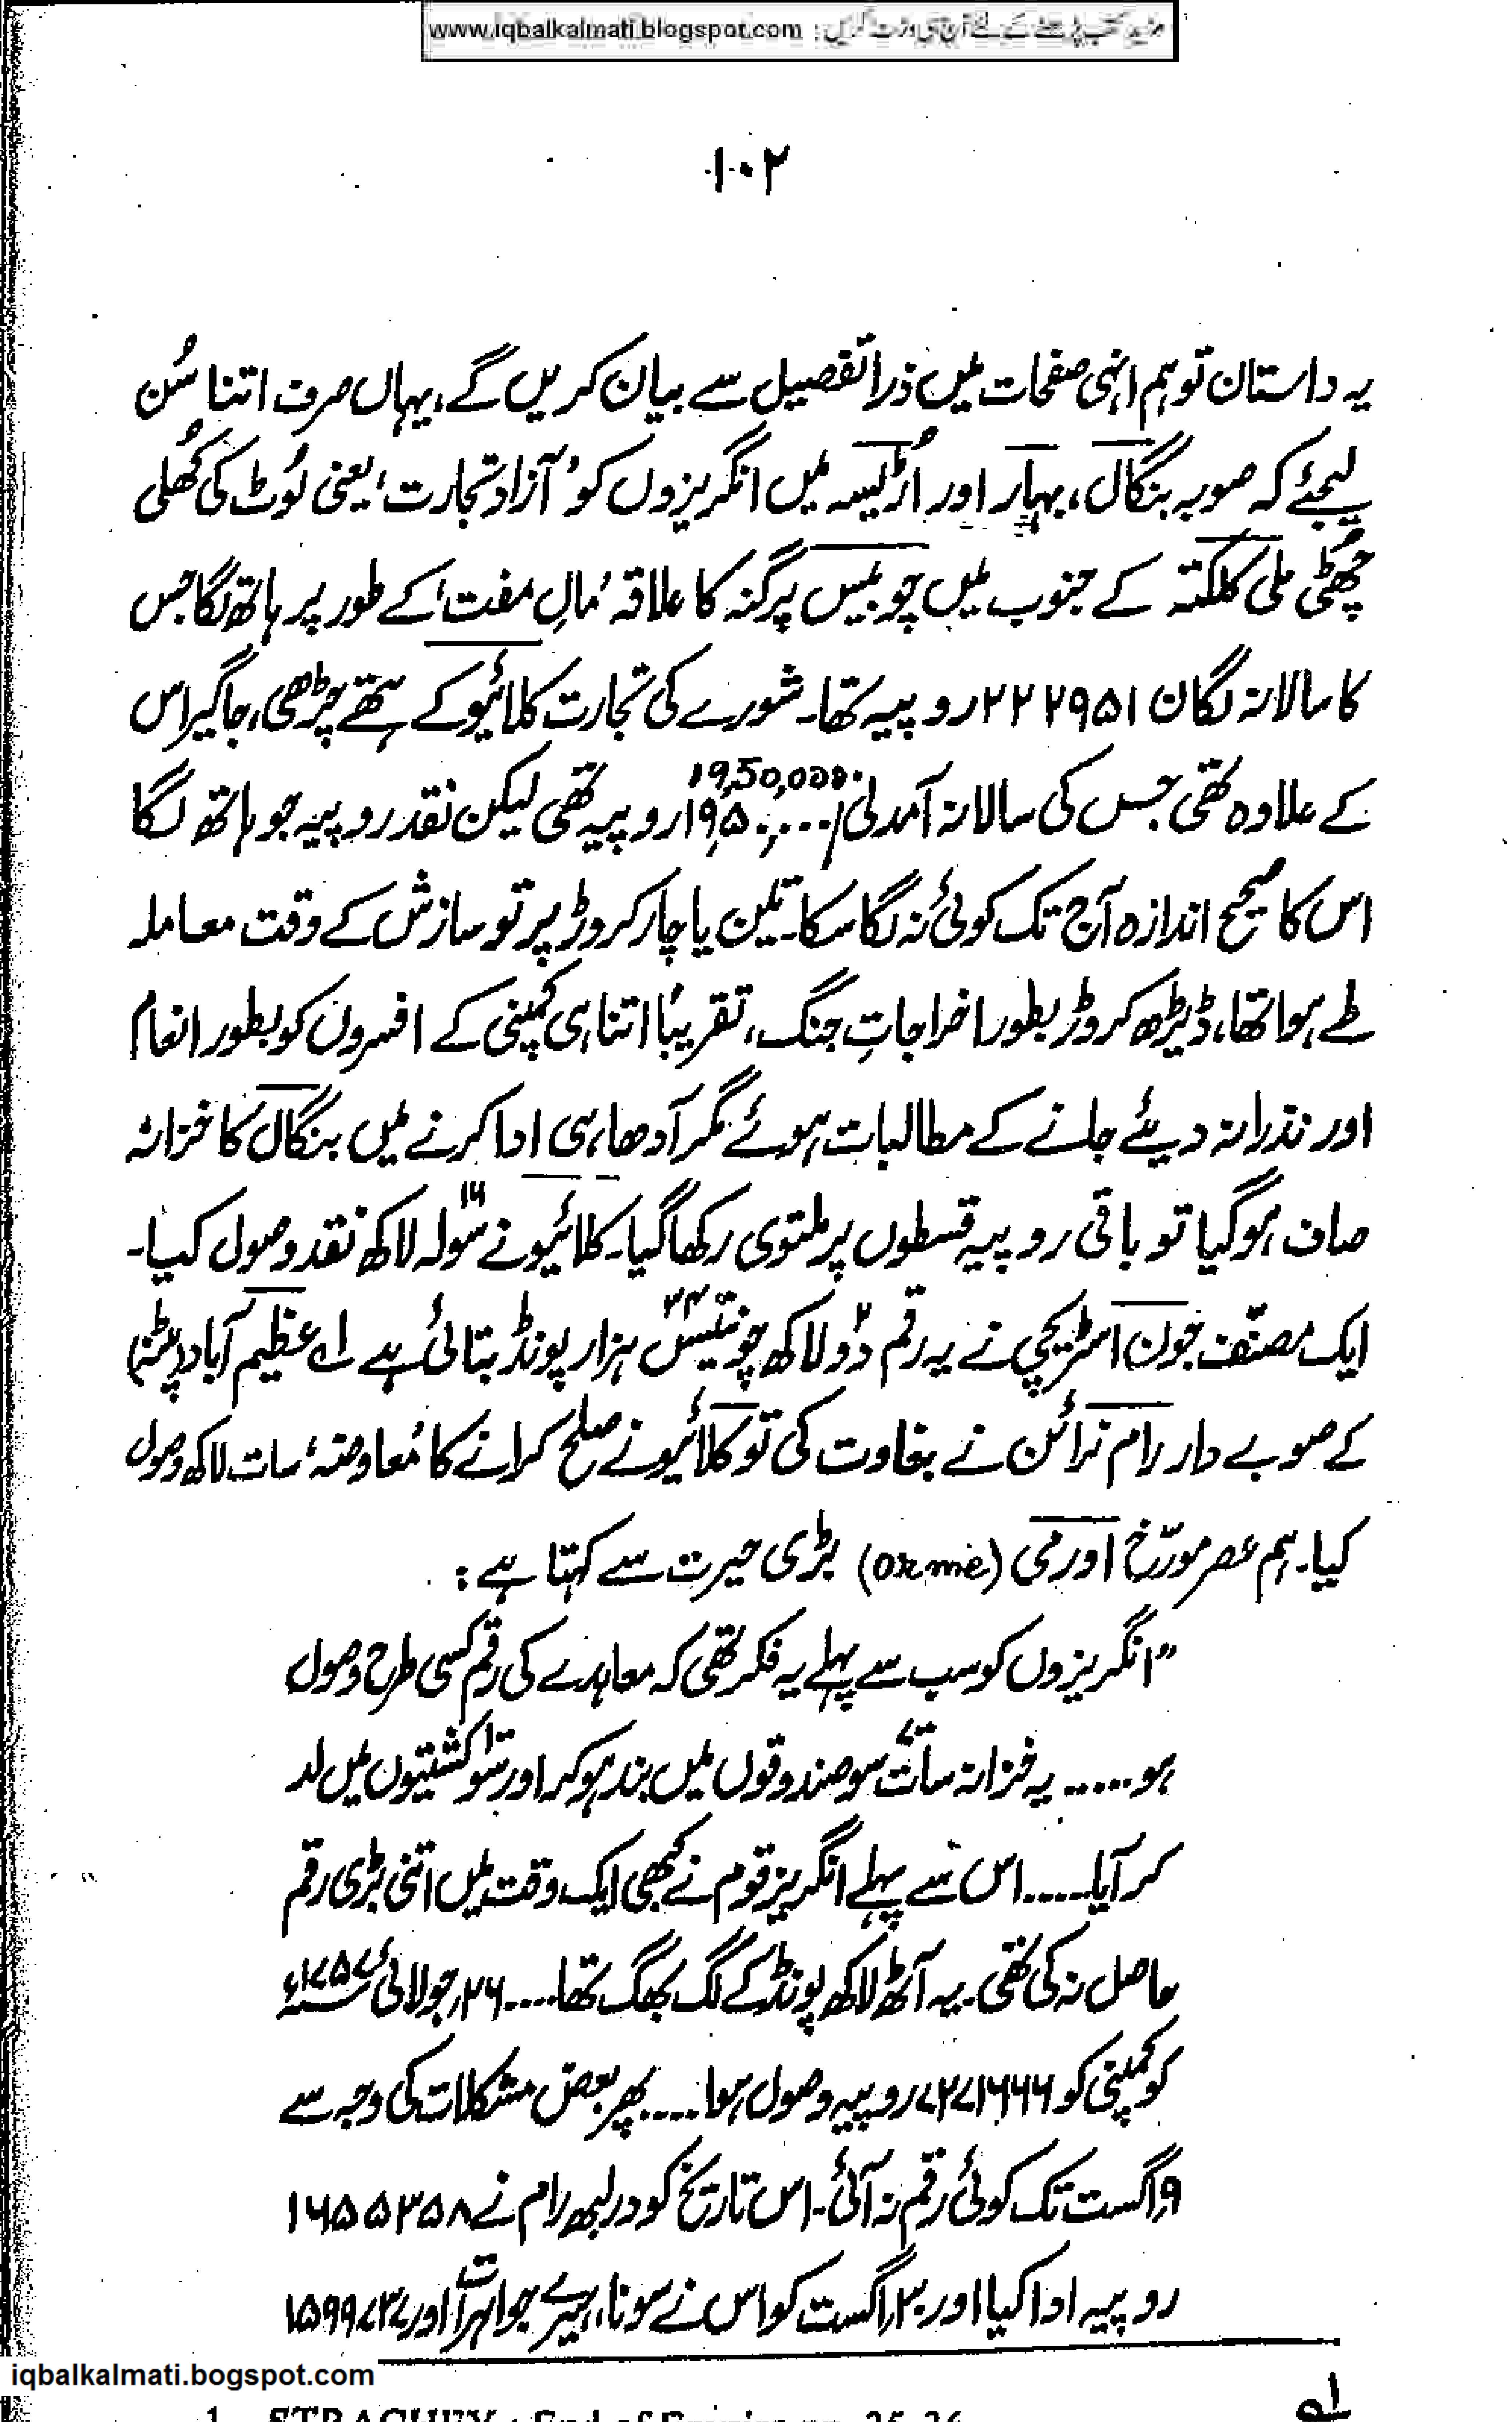 www.iqbalkalmati.blogspot.com : مزید کتب پڑھنے کے لئے آج ہی وزٹ کریں
۱۰۲
یہ داستان تو ہم انہی صفحات میں ذرا تفصیل سے بیان کریں گے، یہاں صرف اتنا سُن
لیجئے کہ صوبہ بنگال، بہار اور اُڑیسہ میں انگریزوں کو 'آزاد تجارت' یعنی لُوٹ کی کُھلی
چُھٹی ملی کلکتہ کے جنوب میں چوبیس پرگنہ کا علاقہ 'مالِ مفت' کے طور پر ہاتھ لگا جس
کا سالانہ لگان ۲۲۲۹۵۱ روپیہ تھا۔ شورے کی تجارت کلائیو کے ہتھے چڑھی، جاگیر اس
19,50,000
کے علاوہ تھی جس کی سالانہ آمدنی ۱۹,۵۰,۰۰۰/ روپیہ تھی لیکن نقد روپیہ جو ہاتھ لگا
اس کا صحیح اندازہ آج تک کوئی نہ لگا سکا۔ تین یا چار کروڑ پر تو سازش کے وقت معاملہ
طے ہوا تھا، ڈیڑھ کروڑ بطور اخراجاتِ جنگ، تقریباً اتنا ہی کمپنی کے افسروں کو بطور انعام
اور نذرانہ دیئے جانے کے مطالبات ہوئے مگر آدھا ہی ادا کرنے میں بنگال کا خزانہ
صاف ہو گیا تو باقی روپیہ قسطوں پر ملتوی رکھا گیا۔ کلائیو نے سولہ ۱۶ لاکھ نقد وصول کیا۔
ایک مصنّف جون اسٹریچی نے یہ رقم دو ۲ لاکھ چونتیس ۳۴ ہزار پونڈ بتائی ہے ۱؎ عظیم آباد (پٹنہ)
کے صوبے دار رام نرائن نے بغاوت کی تو کلائیو نے صلح کرانے کا 'معاوضہ' سات لاکھ وصول
کیا۔ ہم عصر مورّخ اورمی (orme) بڑی حیرت سے کہتا ہے :
"انگریزوں کو سب سے پہلے یہ فکر تھی کہ معاہدے کی رقم کسی طرح وصول
ہو..... یہ خزانہ سات ۷۰۰ سو صندوقوں میں بند ہو کر اور سو ۱۰۰ کشتیوں میں لد
کر آیا..... اس سے پہلے انگریز قوم نے کبھی ایک وقت میں اتنی بڑی رقم
حاصل نہ کی تھی۔ یہ آٹھ لاکھ پونڈ کے لگ بھگ تھا.... ۲۶ جولائی ۱۷۵۷ء
کو کمپنی کو ۷۲۷۱۶۶۶ روپیہ وصول ہوا.... پھر بعض مشکلات کی وجہ سے
۹ اگست تک کوئی رقم نہ آئی۔ اس تاریخ کو دولبھ رام نے ۱۶۵۵۳۵۸
روپیہ ادا کیا اور ۳۰ اگست کو اس نے سونا، ہیرے جواہرات اور ۱۵۹۹۷۳۷
iqbalkalmati.bogspot.com
۱؎
1. STRACHEY : End of Empire pp. 35-36